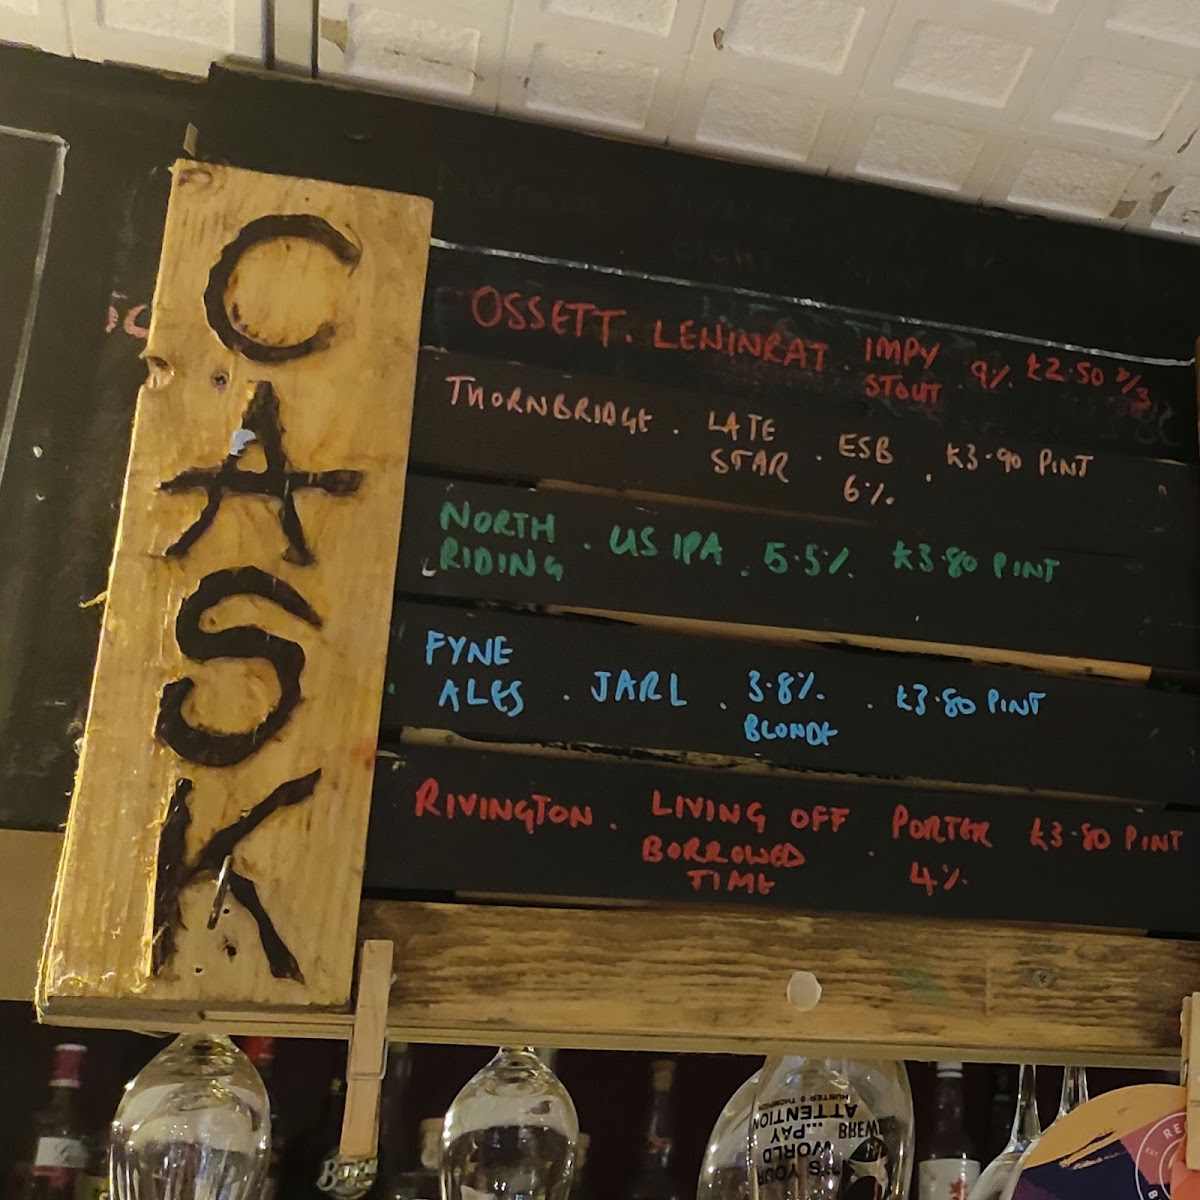 CASK
OSSETT. LENINRAT. IMPY STOUT. 9%. £2.50 ⅓
THORNBRIDGE. LATE STAR. ESB 6%. £3.90 PINT
NORTH RIDING. US IPA. 5.5%. £3.80 PINT
FYNE ALES. JARL. 3.8%. BLONDE. £3.80 PINT
RIVINGTON. LIVING OFF BORROWED TIME. PORTER 4%. £3.80 PINT
IT'S YOUR
WORLD
...PAY
ATTENTION